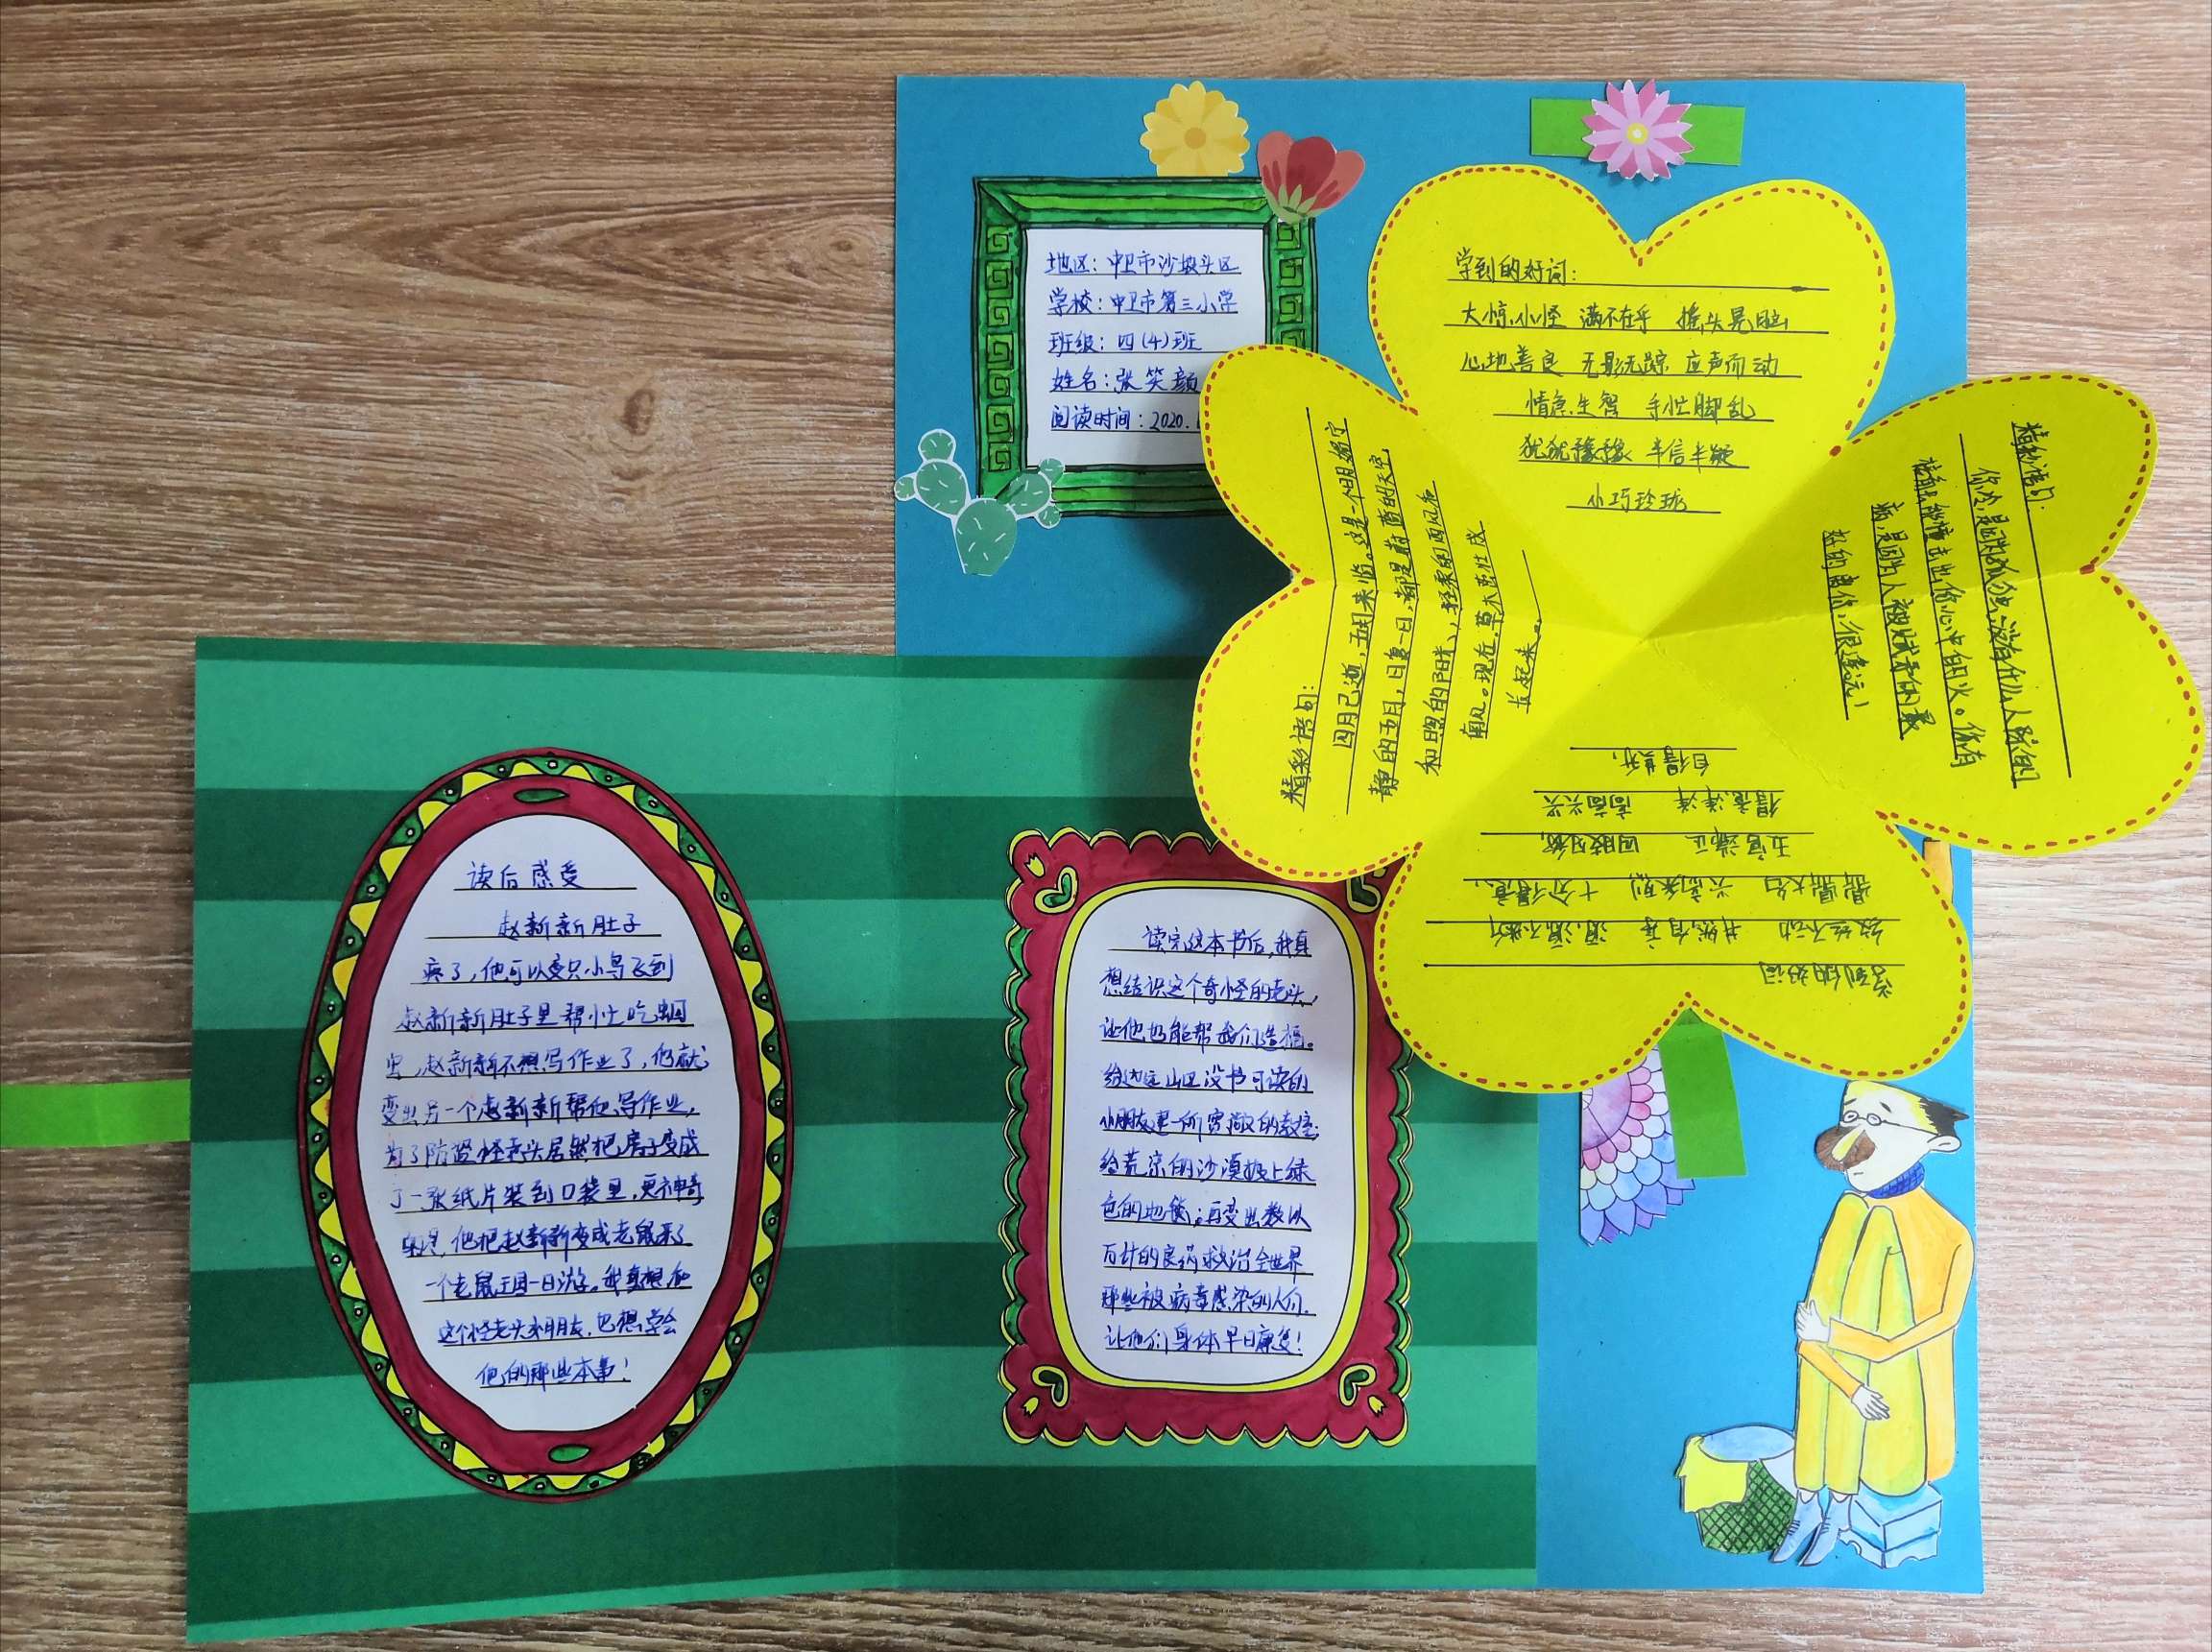 地区：中卫市沙坡头区
学校：中卫市第三小学
班级：四(4)班
姓名：张笑颜
阅读时间：2020.
学到的好词：
大惊小怪 满不在乎 摇头晃脑
心地善良 无影无踪 应声而动
情急生智 手忙脚乱
犹犹豫豫 半信半疑
小巧玲珑
精彩语句：
四月已逝，五月来临。这是一个明媚宁
静的五月，日复一日，都是蔚蓝的天空
和煦的阳光，轻柔的雨
现在，草木茁壮成
长起来。
精彩语句：
你冷，是因为孤独，没有什么人际间的
接触能撞击出你心中的火。你有
病，是因为人被赋予的最
甜的离你很遥远！
学到的好词
纹丝不动 井然有序 源源不断
鼎鼎大名 十分得意
五官端正
得意洋洋 高高兴兴
自得其乐
读后感受
赵新新肚子
疼了，他可以变只小鸟飞到
赵新新肚子里帮忙吃蛔
虫，赵新新不想写作业了，他就
变出另一个赵新新帮他写作业，
为了防盗怪老头居然把房子变成
了一张纸片装到口袋里，更神奇
他把赵新新变成老鼠来了
一个老鼠王国一日游。我真想和
这个怪老头来朋友，也想学会
他的那些本事！
读完这本书后，我真
想结识这个奇怪的老头，
让他也能帮我们造福。
给边远山区没书可读的
小朋友建一所宽敞的教室；
给荒凉的沙漠披上绿
色的地毯；再变出数以
万计的良药救治全世界
那些被病毒感染的人们，
让他们身体早日康复！